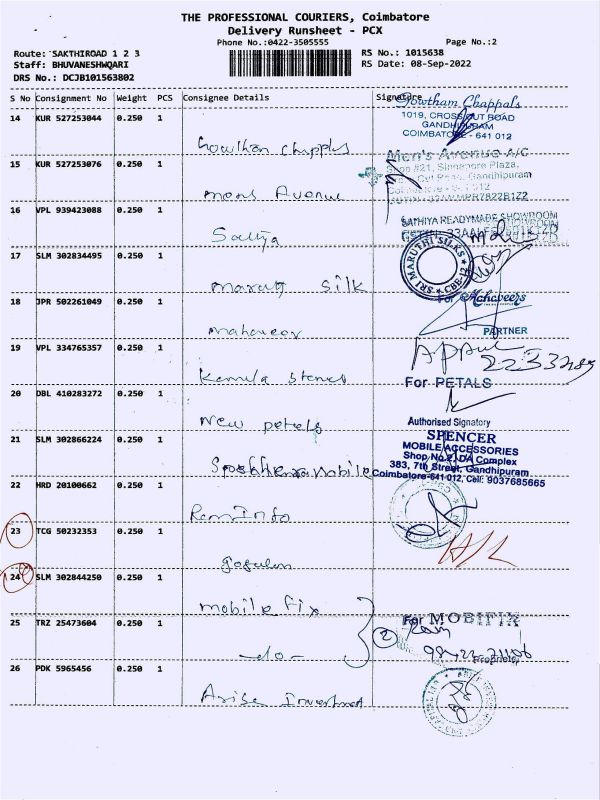 THE PROFESSIONAL COURIERS, Coimbatore
Delivery Runsheet - PCX
Phone No.:0422-3505555 Page No.:2
Route: SAKTHIROAD 1 2 3 RS No.: 1015638
Staff: BHUVANESHWQARI RS Date: 08-Sep-2022
DRS No.: DCJB101563802
S No Consignment No Weight PCS Consignee Details Signature
Gowtham Chappals
1019, CROSS CUT ROAD
GANDHIPURAM
COIMBATORE - 641 012
14 KUR 527253044 0.250 1
Gowthan Chapples
Men's Avenue A/C
Shop #21, Singapore Plaza,
Gandhipuram
15 KUR 527253076 0.250 1
mens Avenue
SATHIYA READYMADE SHOWROOM
16 VPL 939423088 0.250 1
Sathya
SRI MARUTHI SILKS CBE-12
17 SLM 302834495 0.250 1
maruthi silk
For Mahaveers
PARTNER
18 JPR 502261049 0.250 1
mahaveer
19 VPL 334765357 0.250 1
Kamila stones
For PETALS
Authorised Signatory
20 DBL 410283272 0.250 1
New petals
SPENCER
MOBILE ACCESSORIES
Shop No.2, DA Complex
383, 7th Street, Gandhipuram
Coimbatore-641 012, Cell: 9037685665
21 SLM 302866224 0.250 1
mobile
22 HRD 20100662 0.250 1
Ram Info
23 TCG 50232353 0.250 1
24 SLM 302844250 0.250 1
mobile fix
For MOBIFIX
Proprietor
25 TRZ 25473604 0.250 1
-do-
2
26 PDK 5965456 1
Arise Investment